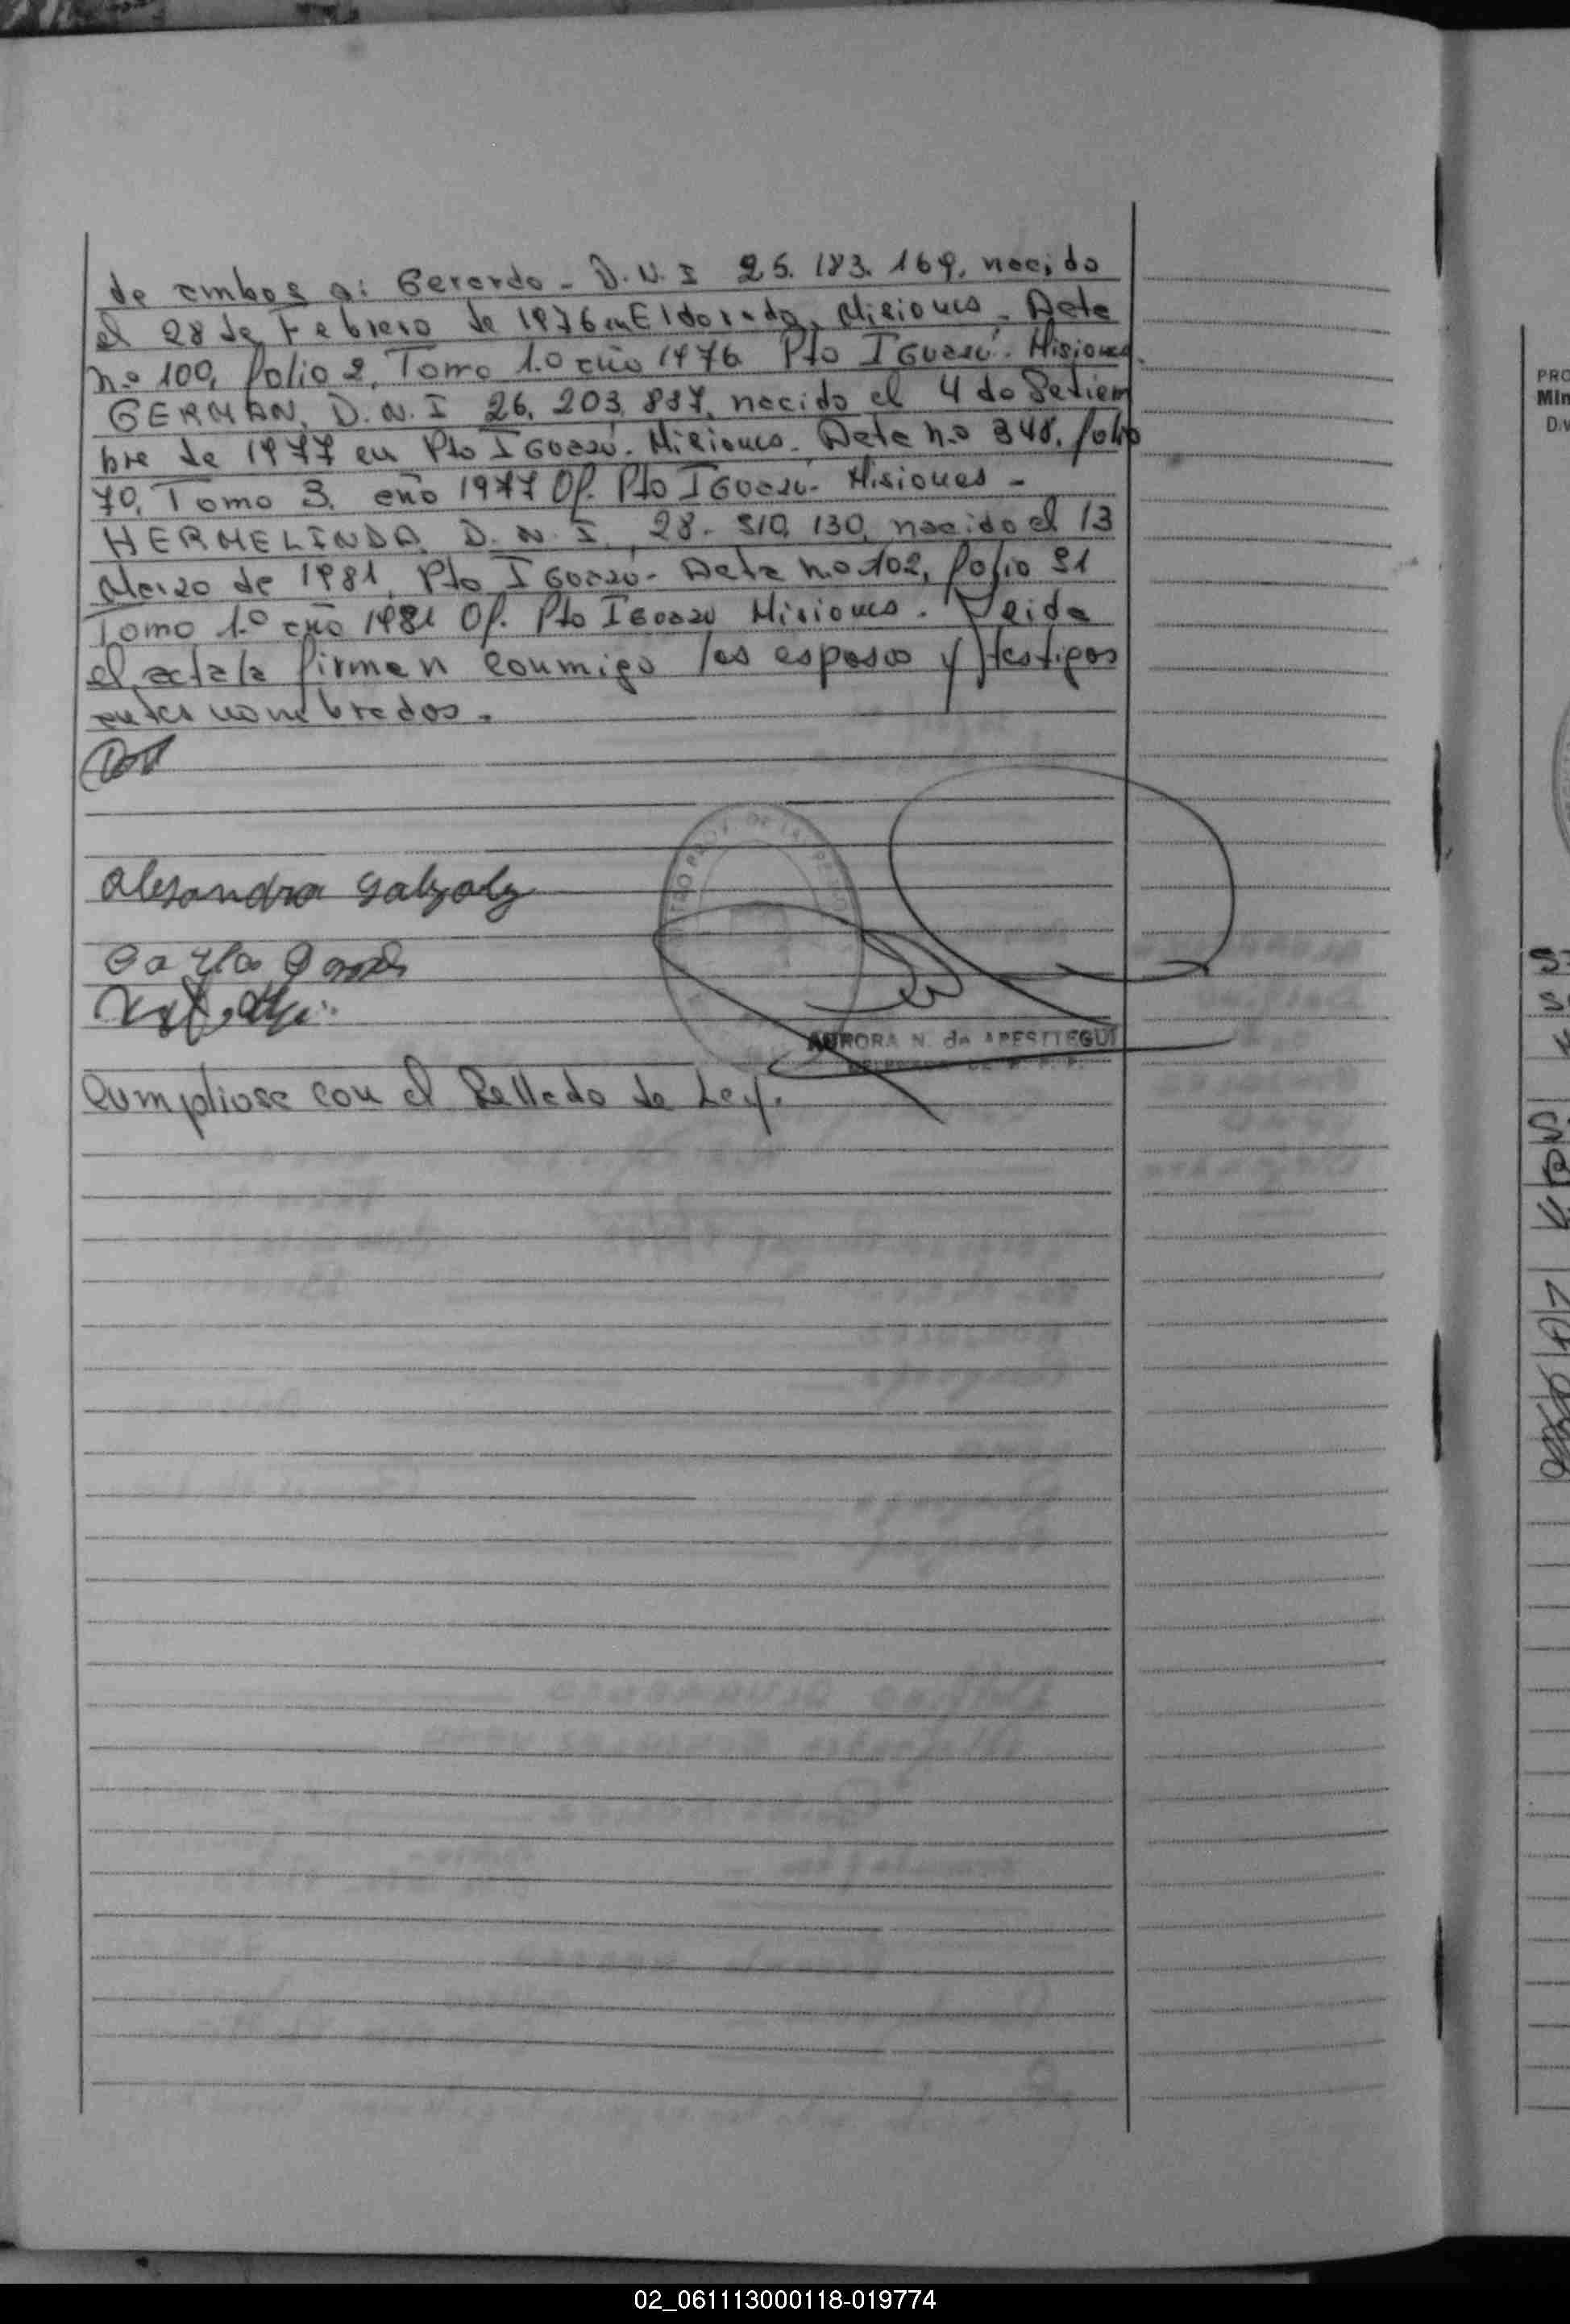 de ambos a: Gerardo - D.N.I 25.183.169, nacido
el 28 de Febrero de 1976 en Eldorado, Misiones - Acta
n.o 100, folio 2, Tomo 1.o año 1976 Pto Iguazú. Misiones.
GERMAN, D.N.I 26.203.837, nacido el 4 de Setiem
bre de 1977 en Pto Iguazú. Misiones. Acta n.o 348, folio
70, Tomo 3. año 1977 Of. Pto Iguazú - Misiones -
HERMELINDA, D.N.I., 28.810.130, nacido el 13
Marzo de 1981, Pto Iguazú - Acta n.o 102, folio 51
Tomo 1.o año 1981 Of. Pto Iguazu Misiones. Leida
el acta la firman conmigo los esposos y testigos
antes nombrados.
alesandra
AURORA N. de APESTTEGUI
Cumpliose con el Sellado de Ley.
PRO
Min
D.
02_061113000118-019774